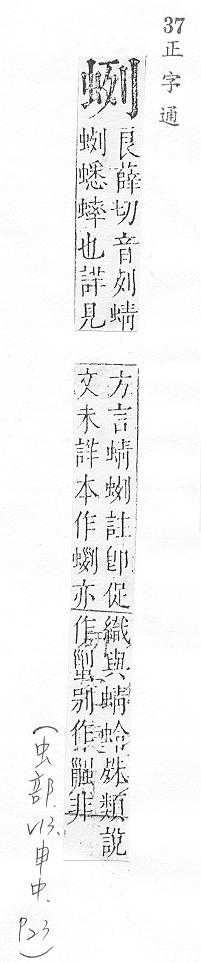 37 正字通
蛚
良薛切音列蜻
蛚蟋蟀也詳見
方言蜻蛚註卽促織與蜻蛉殊類說
文未詳本作亦作別作非
(虫部. V13. 申中. P23)